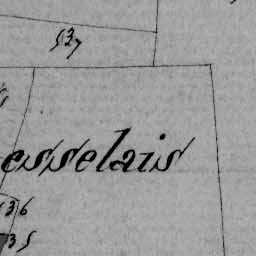 537
esselais
536
35